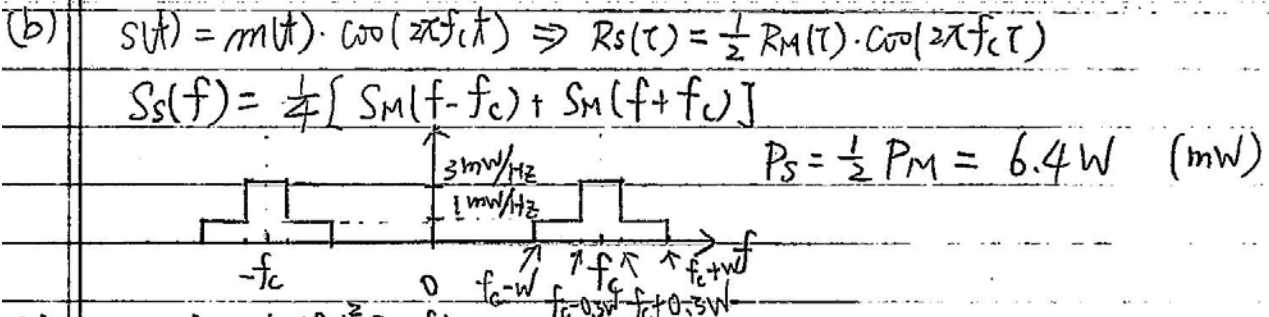 (b) s(t) = m(t). cos(2πfct) ⇒ Rs(τ) = 1/2 RM(τ). cos(2πfcτ)
Ss(f) = 1/4 [ SM(f-fc) + SM(f+fc) ]
3mW/Hz
Ps = 1/2 PM = 6.4W (mW)
1mW/Hz
f
-fc 0 fc-W fc fc+W
fc-0.3W fc+0.3W